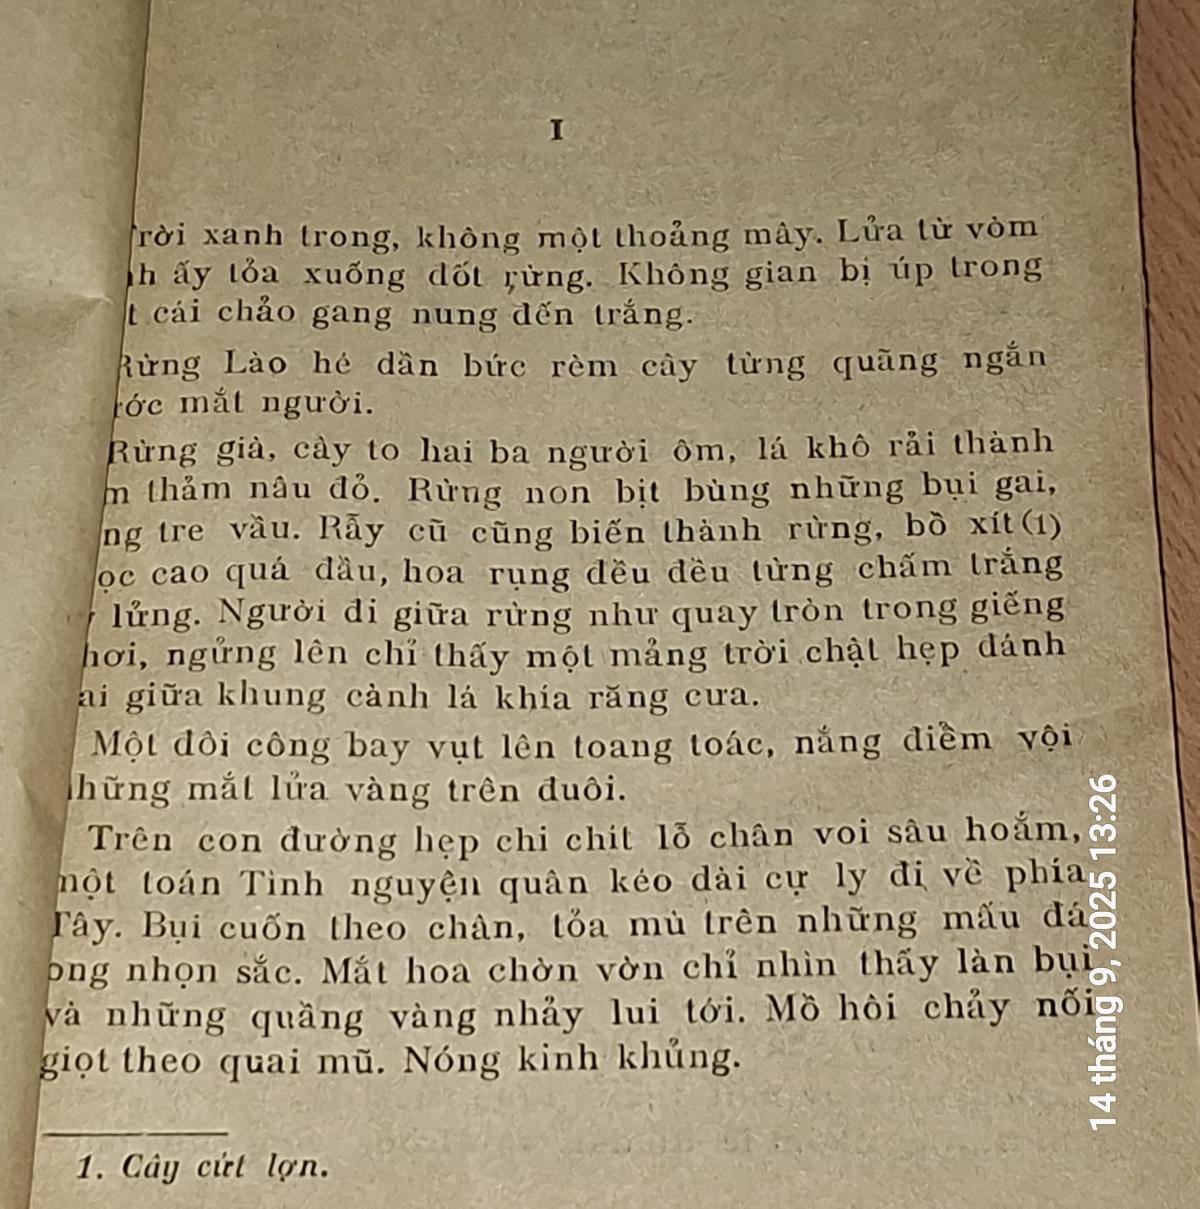 I
rời xanh trong, không một thoảng mây. Lửa từ vòm
h ấy tỏa xuống đốt rừng. Không gian bị úp trong
t cái chảo gang nung đến trắng.
Rừng Lào hé dần bức rèm cây từng quãng ngắn
ớc mắt người.
Rừng già, cây to hai ba người ôm, lá khô rải thành
m thảm nâu đỏ. Rừng non bịt bùng những bụi gai,
ng tre vầu. Rẫy cũ cũng biến thành rừng, bồ xít(1)
ọc cao quá đầu, hoa rụng đều đều từng chấm trắng
lửng. Người đi giữa rừng như quay tròn trong giếng
hơi, ngửng lên chỉ thấy một mảng trời chật hẹp đánh
ai giữa khung cành lá khía răng cưa.
Một đôi công bay vụt lên toang toác, nắng điểm vội
những mắt lửa vàng trên đuôi.
Trên con đường hẹp chi chít lỗ chân voi sâu hoắm,
một toán Tình nguyện quân kéo dài cự ly đi về phía
Tây. Bụi cuốn theo chân, tỏa mù trên những mấu đá
ong nhọn sắc. Mắt hoa chờn vờn chỉ nhìn thấy làn bụi
và những quầng vàng nhảy lui tới. Mồ hôi chảy nối
giọt theo quai mũ. Nóng kinh khủng.
1. Cây cứt lợn.
14 tháng 9, 2025 13:26